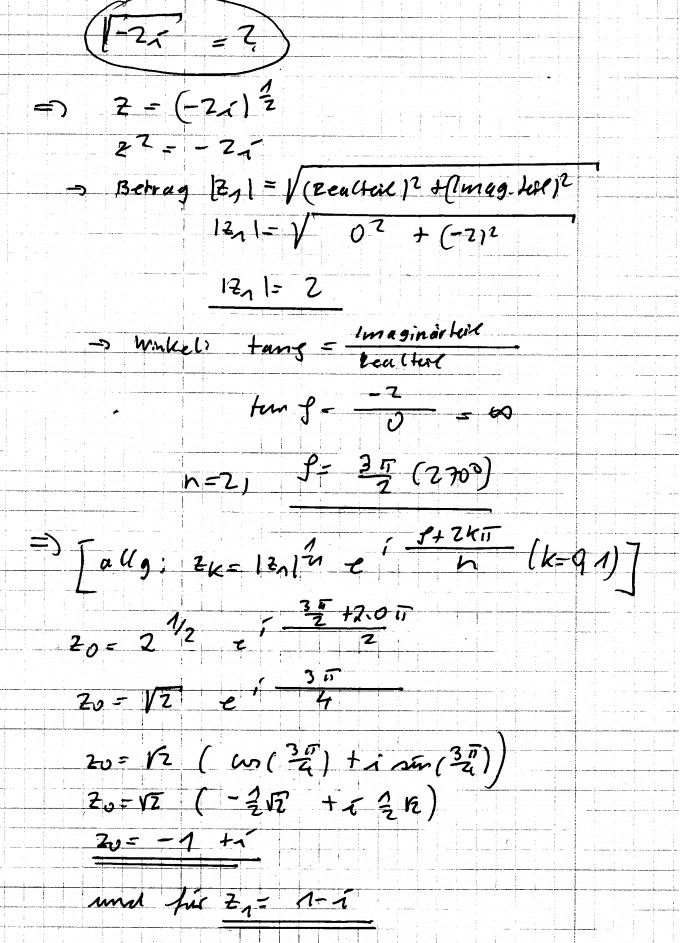 √-2i = ?
⇒ z = (-2i)^(1/2)
z² = -2i
→ Betrag |z₁| = √((Realteil)² + (Imag.teil)²)
|z₁| = √(0² + (-2)²)
|z₁| = 2
→ Winkel: tan φ = Imaginärteil / Realteil
tan φ = -2/0 = ∞
n=2, φ = 3π/2 (270°)
⇒ [allg: z_K = |z₁|^(1/n) e^(i (φ+2kπ)/n) (k=0,1)]
z₀ = 2^(1/2) e^(i (3π/2 + 2·0π)/2)
z₀ = √2 e^(i 3π/4)
z₀ = √2 (cos(3π/4) + i sin(3π/4))
z₀ = √2 (-1/2 √2 + i 1/2 √2)
z₀ = -1 + i
und für z₁ = 1-i